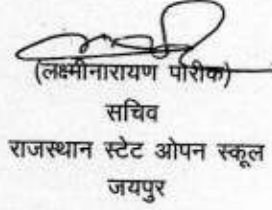 (लक्ष्मीनारायण पारीक)
सचिव
राजस्थान स्टेट ओपन स्कूल
जयपुर